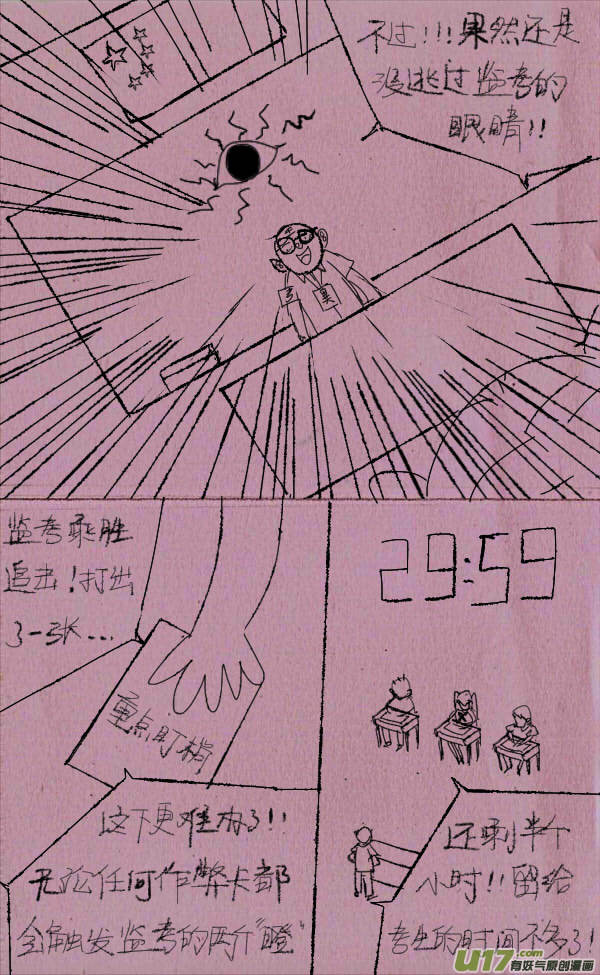 不过!!!果然还是
没逃过监考的
眼睛!!
监考乘胜
追击!打出
了一张...
重点盯梢
这下更难办了!!
无论任何作弊卡都
会触发监考的两个"瞪"
29:59
还剩半个
小时!!留给
考生的时间不多了!
U17.com
有妖气原创漫画